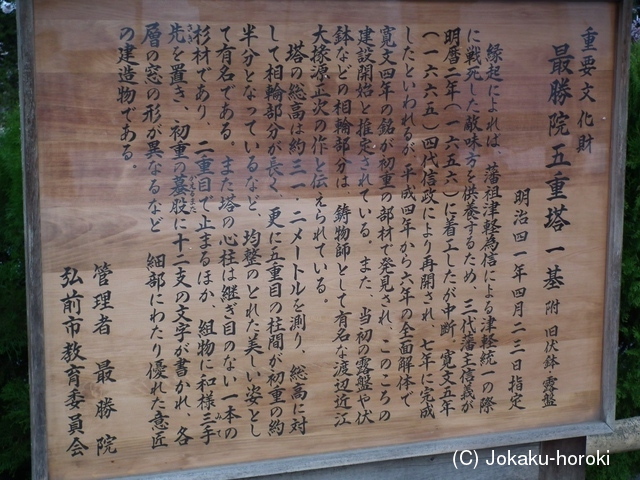 重要文化財
最勝院五重塔 一基 附 旧伏鉢 露盤
明治四一年四月二三日指定
縁起によれば、藩祖津軽為信による津軽統一の際
に戦死した敵味方を供養するため、三代藩主信義が
明暦二年(一六五六)に着工したが中断、寛文五年
(一六六五)四代信政により再開され、七年に完成
したといわれるが、平成四年から六年の全面解体で
寛文四年の銘が初重の部材で発見され、このころの
建設開始と推定されている。また、当初の露盤や伏
鉢などの相輪部分は、鋳物師として有名な渡辺近江
大掾源正次の作と伝えられている。
塔の総高は約三一・二メートルを測り、総高に対
して相輪部分が長く、更に五重目の柱間が初重の約
半分となっているなど、均整のとれた美しい姿とし
て有名である。また塔の心柱は継ぎ目のない一本の
杉材であり、二重目で止まるほか、組物に和様三手
みて
先を置き、初重の蟇股に十二支の文字が書かれ、各
かえるまた
層の窓の形が異なるなど 細部にわたり優れた意匠
の建造物である。
管理者 最勝院
弘前市教育委員会
(C) Jokaku-horoki